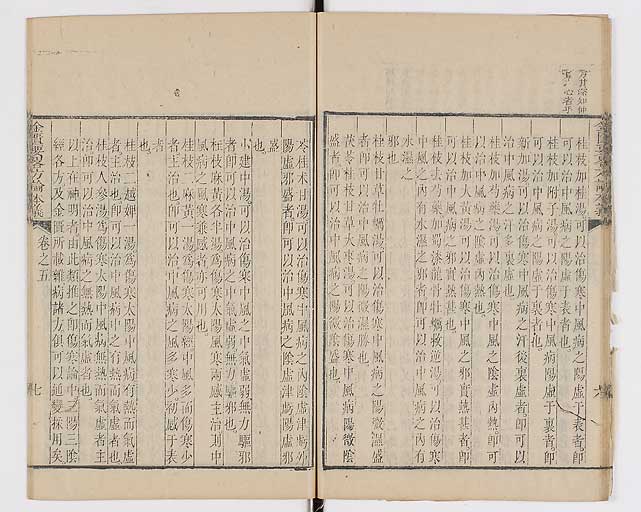 桂枝加桂湯可以治傷寒中風病之陽虛于表者即
可以治中風病之陽虛于表者也
桂枝加附子湯可以治傷寒中風病陽虛于裏者即
可以治中風病之陽虛于裏者也
新加湯可以治傷寒中風病之汗後裏虛者即可以
治中風病之汗多裏虛也
桂枝加芍藥湯可以治傷寒中風病之陰虛內熱即可
以治中風病之陰虛內熱也
桂枝加大黃湯可以治傷寒中風病之邪實熱甚者即
可以治中風病之邪實熱甚也
桂枝去芍藥加蜀漆龍骨牡蠣救逆湯可以治傷寒
中風之內有水濕之邪者即可以治中風病之內有
水濕之
邪也
桂枝甘草牡蠣湯可以治傷寒中風病之陽微濕盛
者即可以治中風病之陽微濕勝也
茯苓桂枝甘草大棗湯可以治傷寒中風病陽微陰
盛者即可以治中風病之陽微陰盛也
金匱要畧方論本義
苓桂朮甘湯可以治傷寒中風病之內陰虛津虧外
陽虛邪盛者即可以治中風病之陰虛津虧陽虛邪
盛
也
小建中湯可以治傷寒中風病之中氣虛弱無力驅邪
者即可以治中風病之中氣虛弱無力驅邪也
桂枝麻黃各半湯為傷寒太陽風寒兩感主治則中
風病之風寒兼感者亦可用也
桂枝二麻黃一湯為傷寒太陽經中風多而傷寒少
者主治也即可以治中風病之風多寒少初感于表
者
也
桂枝二越婢一湯為傷寒太陽中風病有熱而氣虛
者主治也即可以治中風病中之有熱而氣虛者也
桂枝人參湯為傷寒太陽中風病無熱而氣虛者主
治即可以治中風病之無熱而氣虛者也
以上在神明者由此類推之即傷寒論中三陽三陰
經各方及金匱所載雜病諸方俱可以通變採用矣
金匱要畧方論本義
卷之五
七